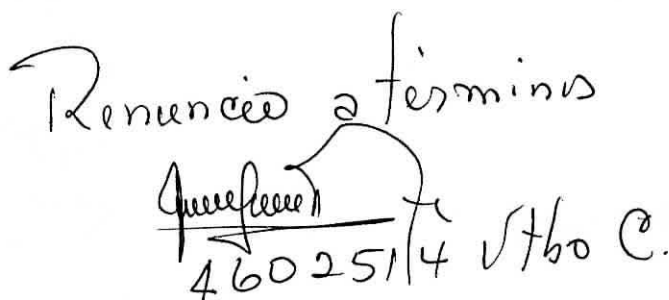 Renuncio a términos
46025114 Vtbo C.